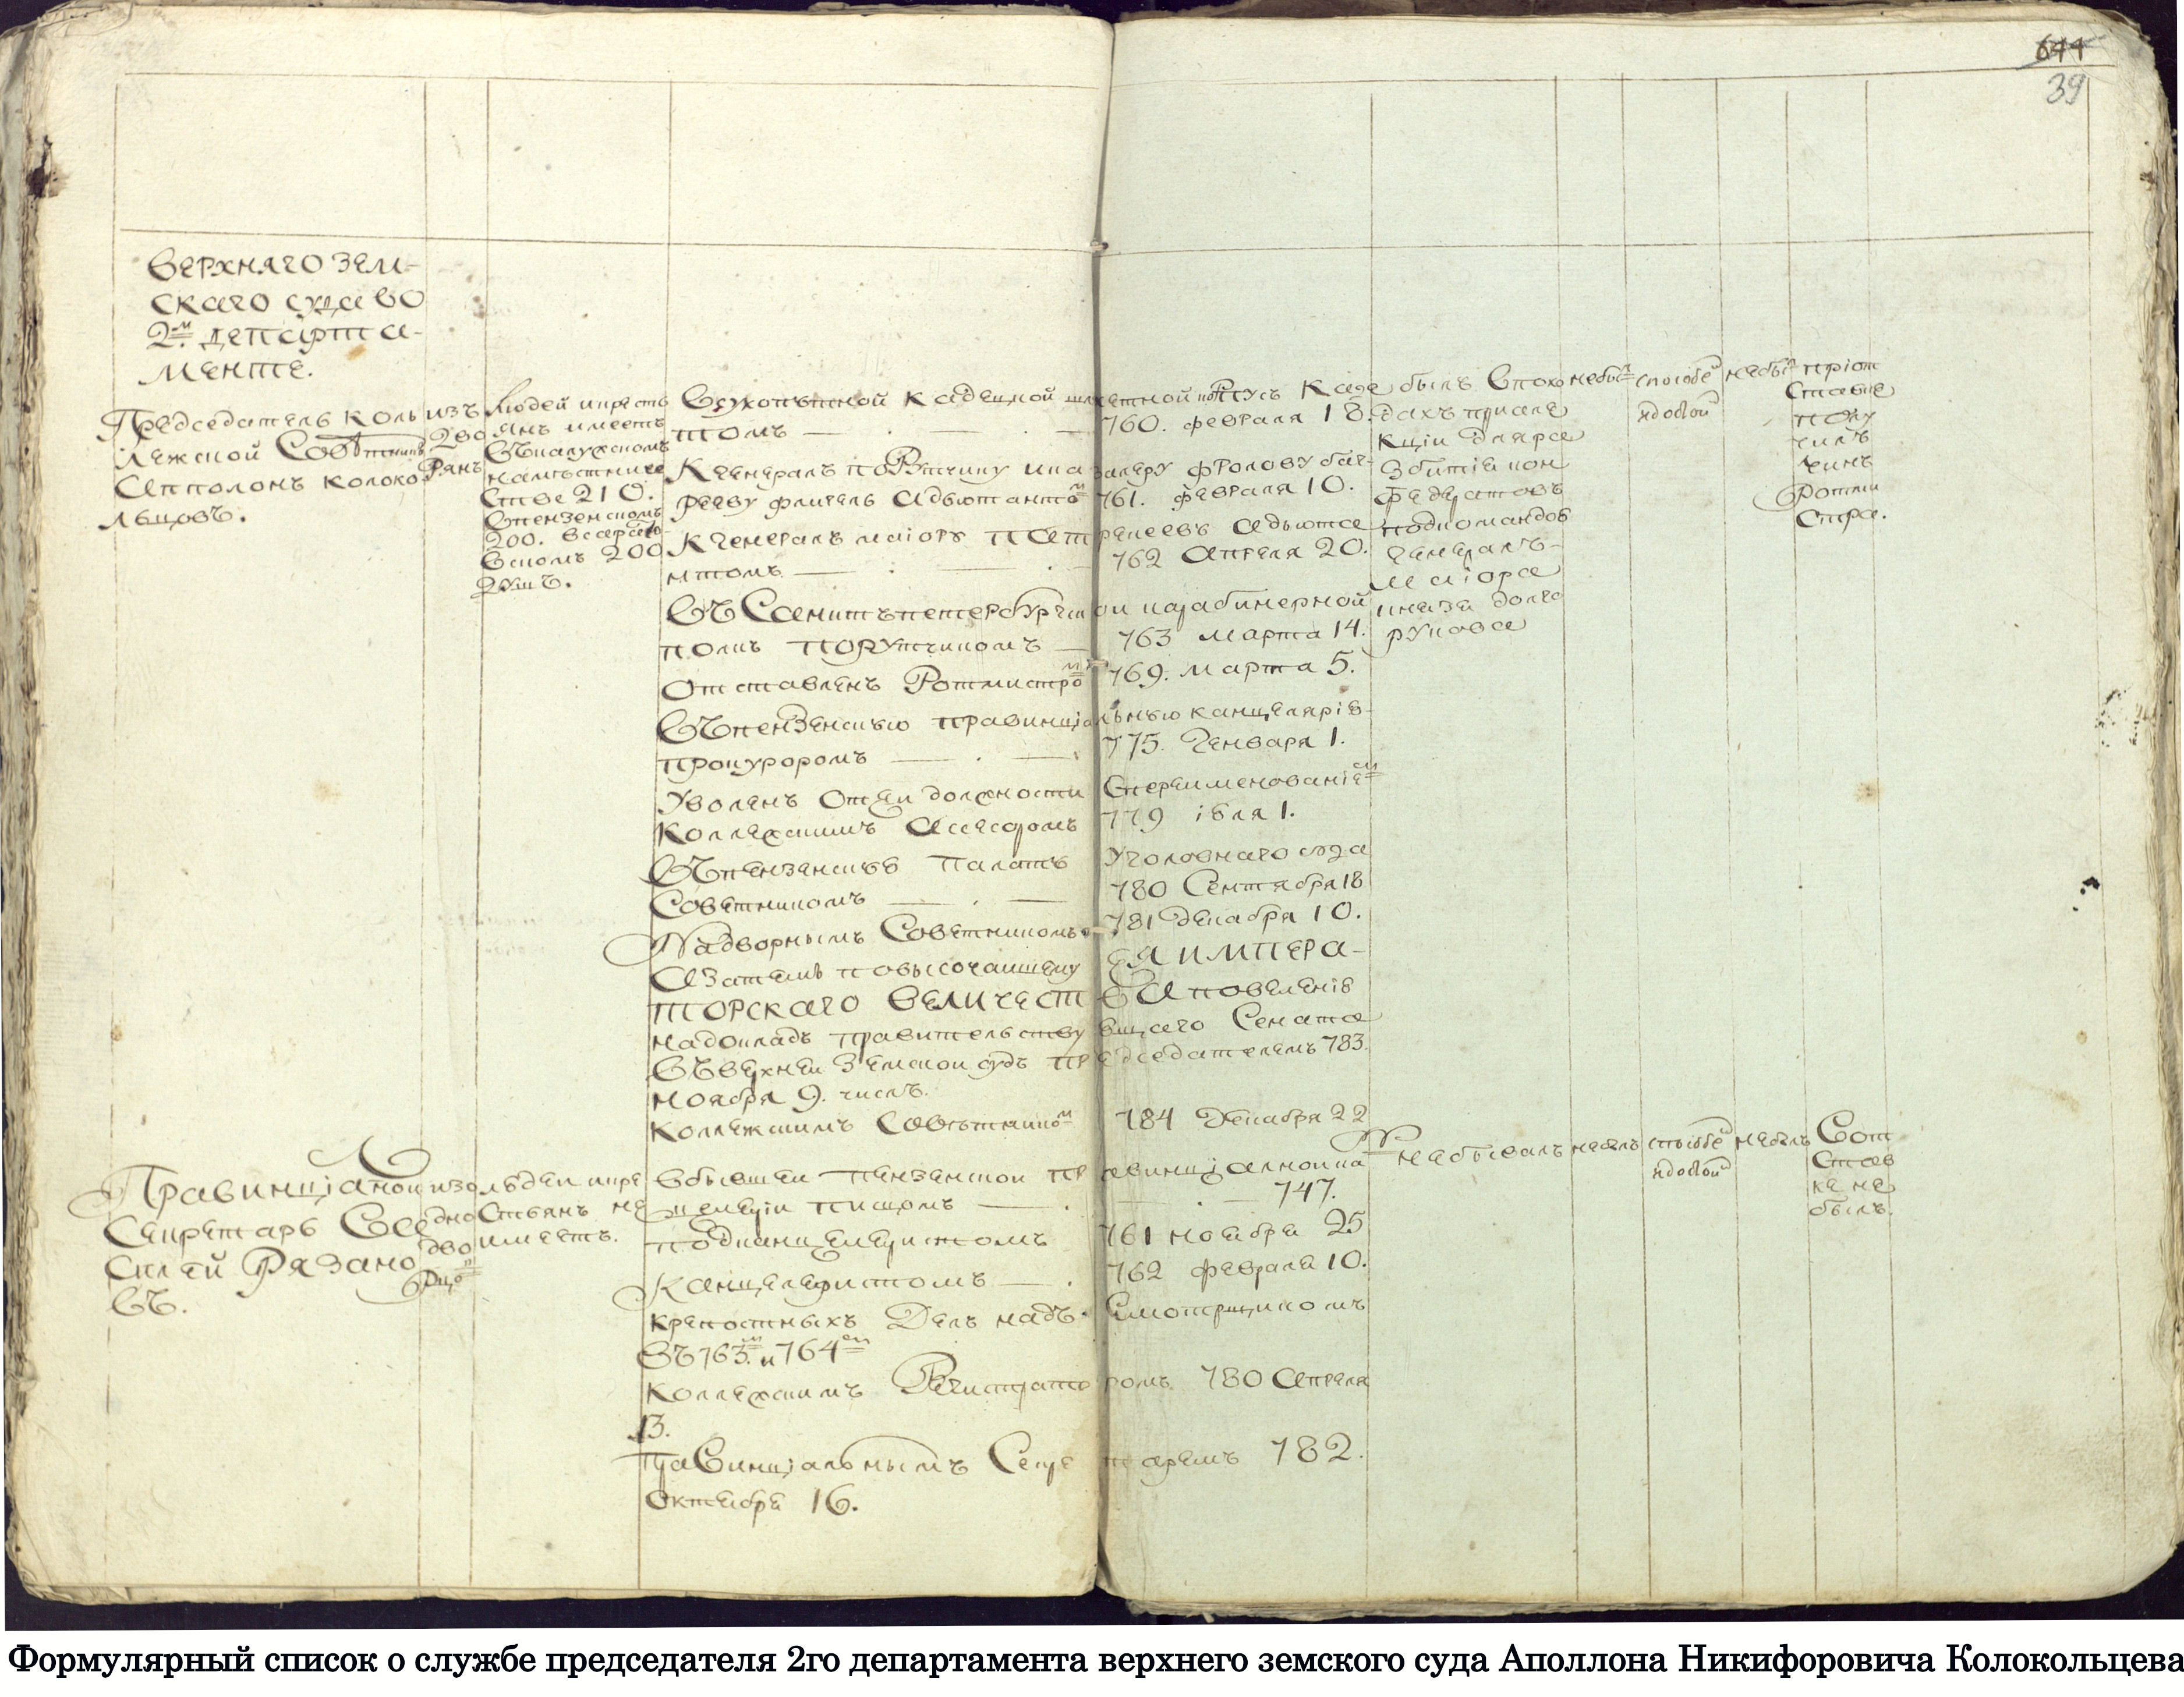 644
39
Верхняго зем-
скаго суда во
2м департа-
менте.
Председатель кол
лежской Советникъ
Апполонъ Колоко
льцовъ.
изъ
дво
рянъ
людей и кресть
янъ имеетъ
въ калужскомъ
наместниче
стве 210.
в пензенскомъ
200. в сарато
вскомъ 200
душъ.
В сухопутной кадецкой шляхетной корпусъ каде
томъ — 760. февраля 18.
К генералъ порутчику и кавалеру Фролову баг-
рееву флигель адьютантом 761. февраля 10.
К генералъ маіору адьюта
нтомъ — 762 апреля 20.
въ Санктъпетербургской карабинерной
полкъ порутчикомъ — 763 марта 14.
Отставленъ Ротмистром 769. марта 5.
въ пензенскую правинціальную канцелярію
прокуроромъ — 775. Генваря 1.
Уволенъ от сей должности с переименованіем
коллежскимъ асесоромъ 779 іюля 1.
в пензенскую палату уголовнаго суда
Советникомъ — 780 Сентября 18
Надворнымъ Советникомъ 781 декабря 10.
а затемъ по высочайшему ея импера-
торскаго величества повеленію
на докладъ правительствующаго Сената
въ верхней земской судъ председателемъ 783.
ноября 9. числъ.
Коллежскимъ Советником 784 Декабря 22
былъ в похо
дахъ при
кціи для ра
збитія кон
федератовъ
под командою
генералъ-
маіора
князя долго
рукова
не был
способе
н достой
не был
при от
ставке
полу
чилъ
чинъ
ротми
стра.
Правинціалной
Секретарь Васи
силей Рязано
въ.
изъ
одно
дво
рцо
людей и кре
стьянъ не
имеетъ.
в бывшей пензенской правинціалной ка
нцеляріи писцомъ — 747.
подканцеляристомъ 761 ноября 25
Канцеляристомъ — 762 февраля 10.
крепостныхъ Делъ надъ смотрщикомъ
въ 763м и 764м
коллежскимъ Регистраторомъ 780 апреля
13.
Правинціальнымъ Секретаремъ 782.
октября 16.
не бывалъ
не былъ
способе
н достой
не былъ
В от
став
ке не
былъ.
Формулярный список о службе председателя 2го департамента верхнего земского суда Аполлона Никифоровича Колокольцева